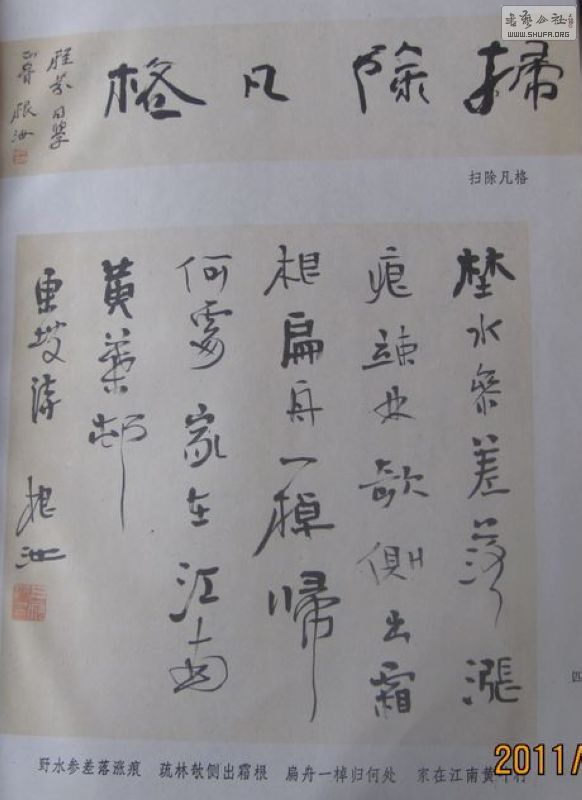 书艺公社
WWW.SHUFA.ORG
掃除凡格
雅芬同學
扫除凡格
埜水參差落漲
痕疎林欹側出霜
根扁舟一棹歸
何處家在江南
黃葉邨
東坡詩
四
野水参差落涨痕 疏林欹侧出霜根 扁舟一棹归何处 家在江南黄叶村
2011/